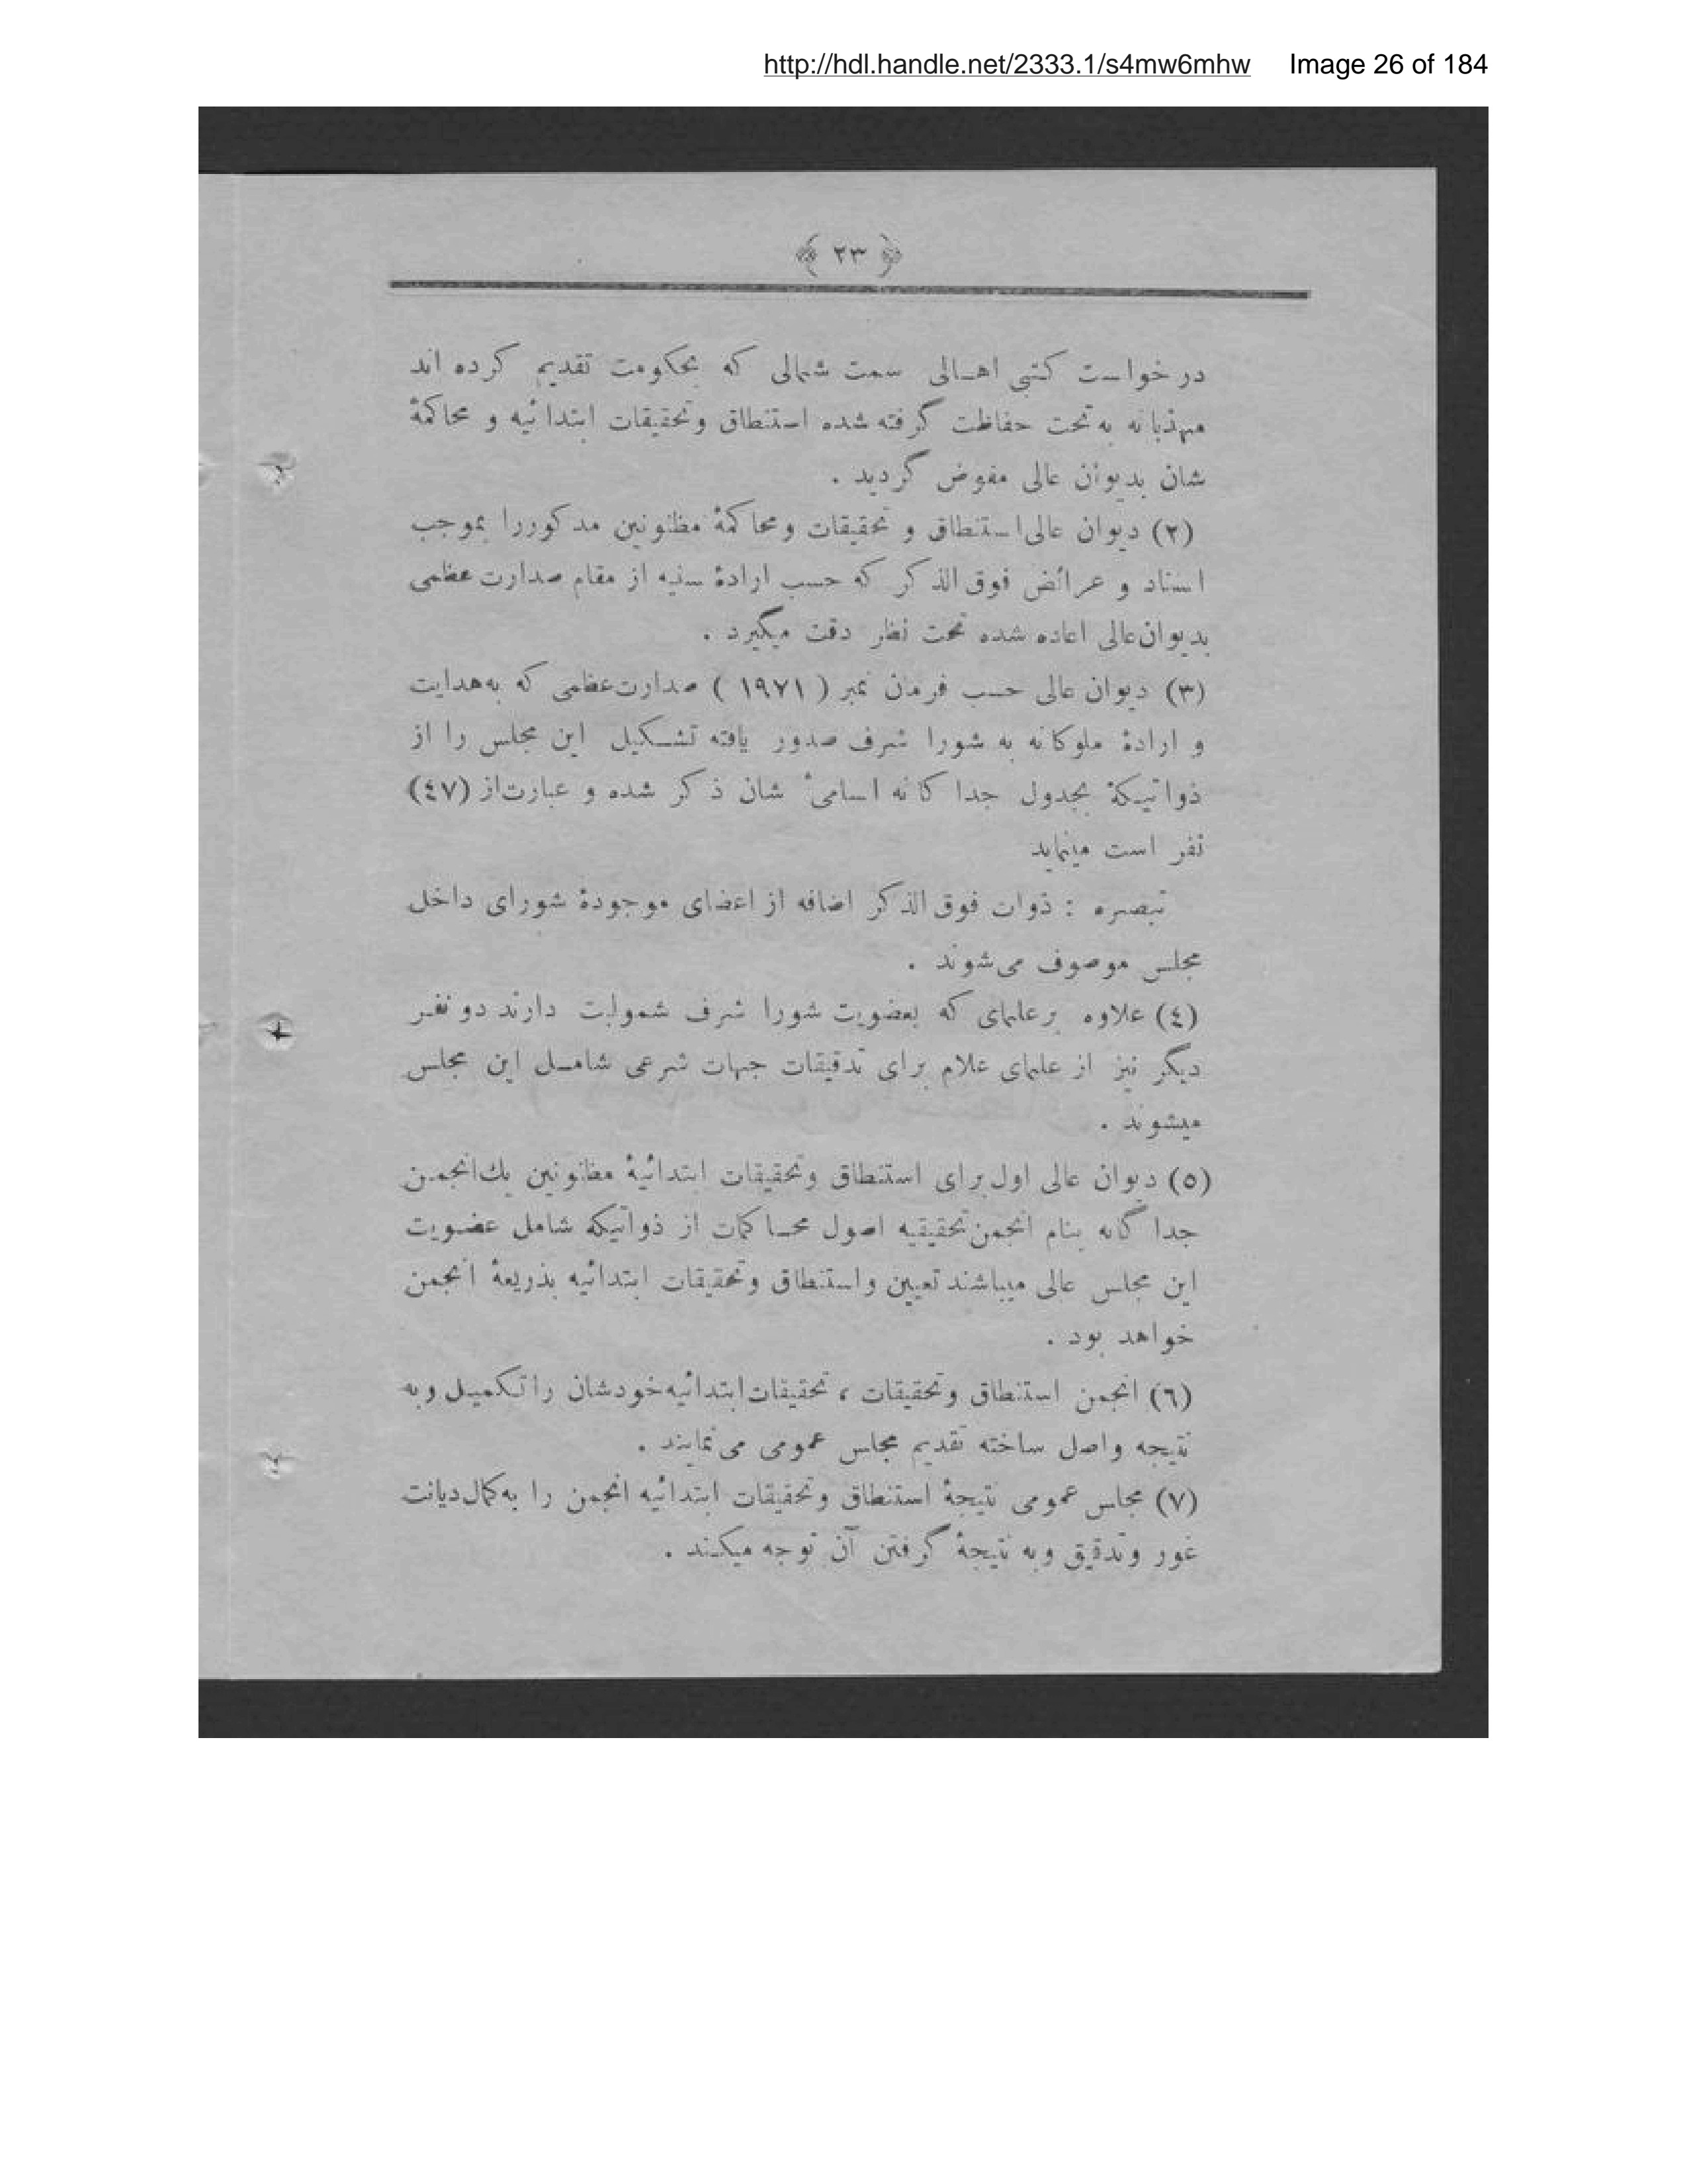 http://hdl.handle.net/2333.1/s4mw6mhw Image 26 of 184
﴿ ٢٣ ﴾
در خواست کتبی اهالی سمت شمالی که بحکومت تقدیم کرده اند
مهذبانه به تحت حفاظت گرفته شده استنطاق و تحقیقات ابتدائیه و محاکمهٔ
شان بدیوان عالی مفوض گردید .
(٢) دیوان عالی استنطاق و تحقیقات و محاکمهٔ مظنونین مذکور را بموجب
اسناد و عرائض فوق الذکر که حسب ارادهٔ سنیه از مقام صدارت عظمی
بدیوان عالی اعاده شده تحت نظر دقت میگیرد .
(٣) دیوان عالی حسب فرمان نمبر ( ١٩٧١ ) صدارت عظمی که به هدایت
و ارادهٔ ملوکانه به شورا شرف صدور یافته تشکیل این مجلس را از
ذواتیکهٔ بجدول جدا کانه اسامیٔ شان ذکر شده و عبارت از (٤٧)
نفر است مینماید
تبصره : ذوات فوق الذکر اضافه از اعضای موجودهٔ شورای داخل
مجلس موصوف می شوند .
(٤) علاوه بر علمای که بعضویت شورا شرف شمولیت دارند دو نفر
دیگر نیز از علمای علام برای تدقیقات جهات شرعی شامل این مجلس
میشوند .
(٥) دیوان عالی اول برای استنطاق و تحقیقات ابتدائیهٔ مظنونین یك انجمن
جدا گانه بنام انجمن تحقیقیه اصول محاکمات از ذواتیکه شامل عضویت
این مجلس عالی میباشند تعیین و استنطاق و تحقیقات ابتدائیه بذریعهٔ انجمن
خواهد بود .
(٦) انجمن استنطاق و تحقیقات ، تحقیقات ابتدائیه خودشان را تکمیل و به
نتیجه واصل ساخته تقدیم مجلس عمومی می نمایند .
(٧) مجلس عمومی نتیجهٔ استنطاق و تحقیقات ابتدائیه انجمن را به کمال دیانت
غور و تدقیق و به نتیجهٔ گرفتن آن توجه میکند .